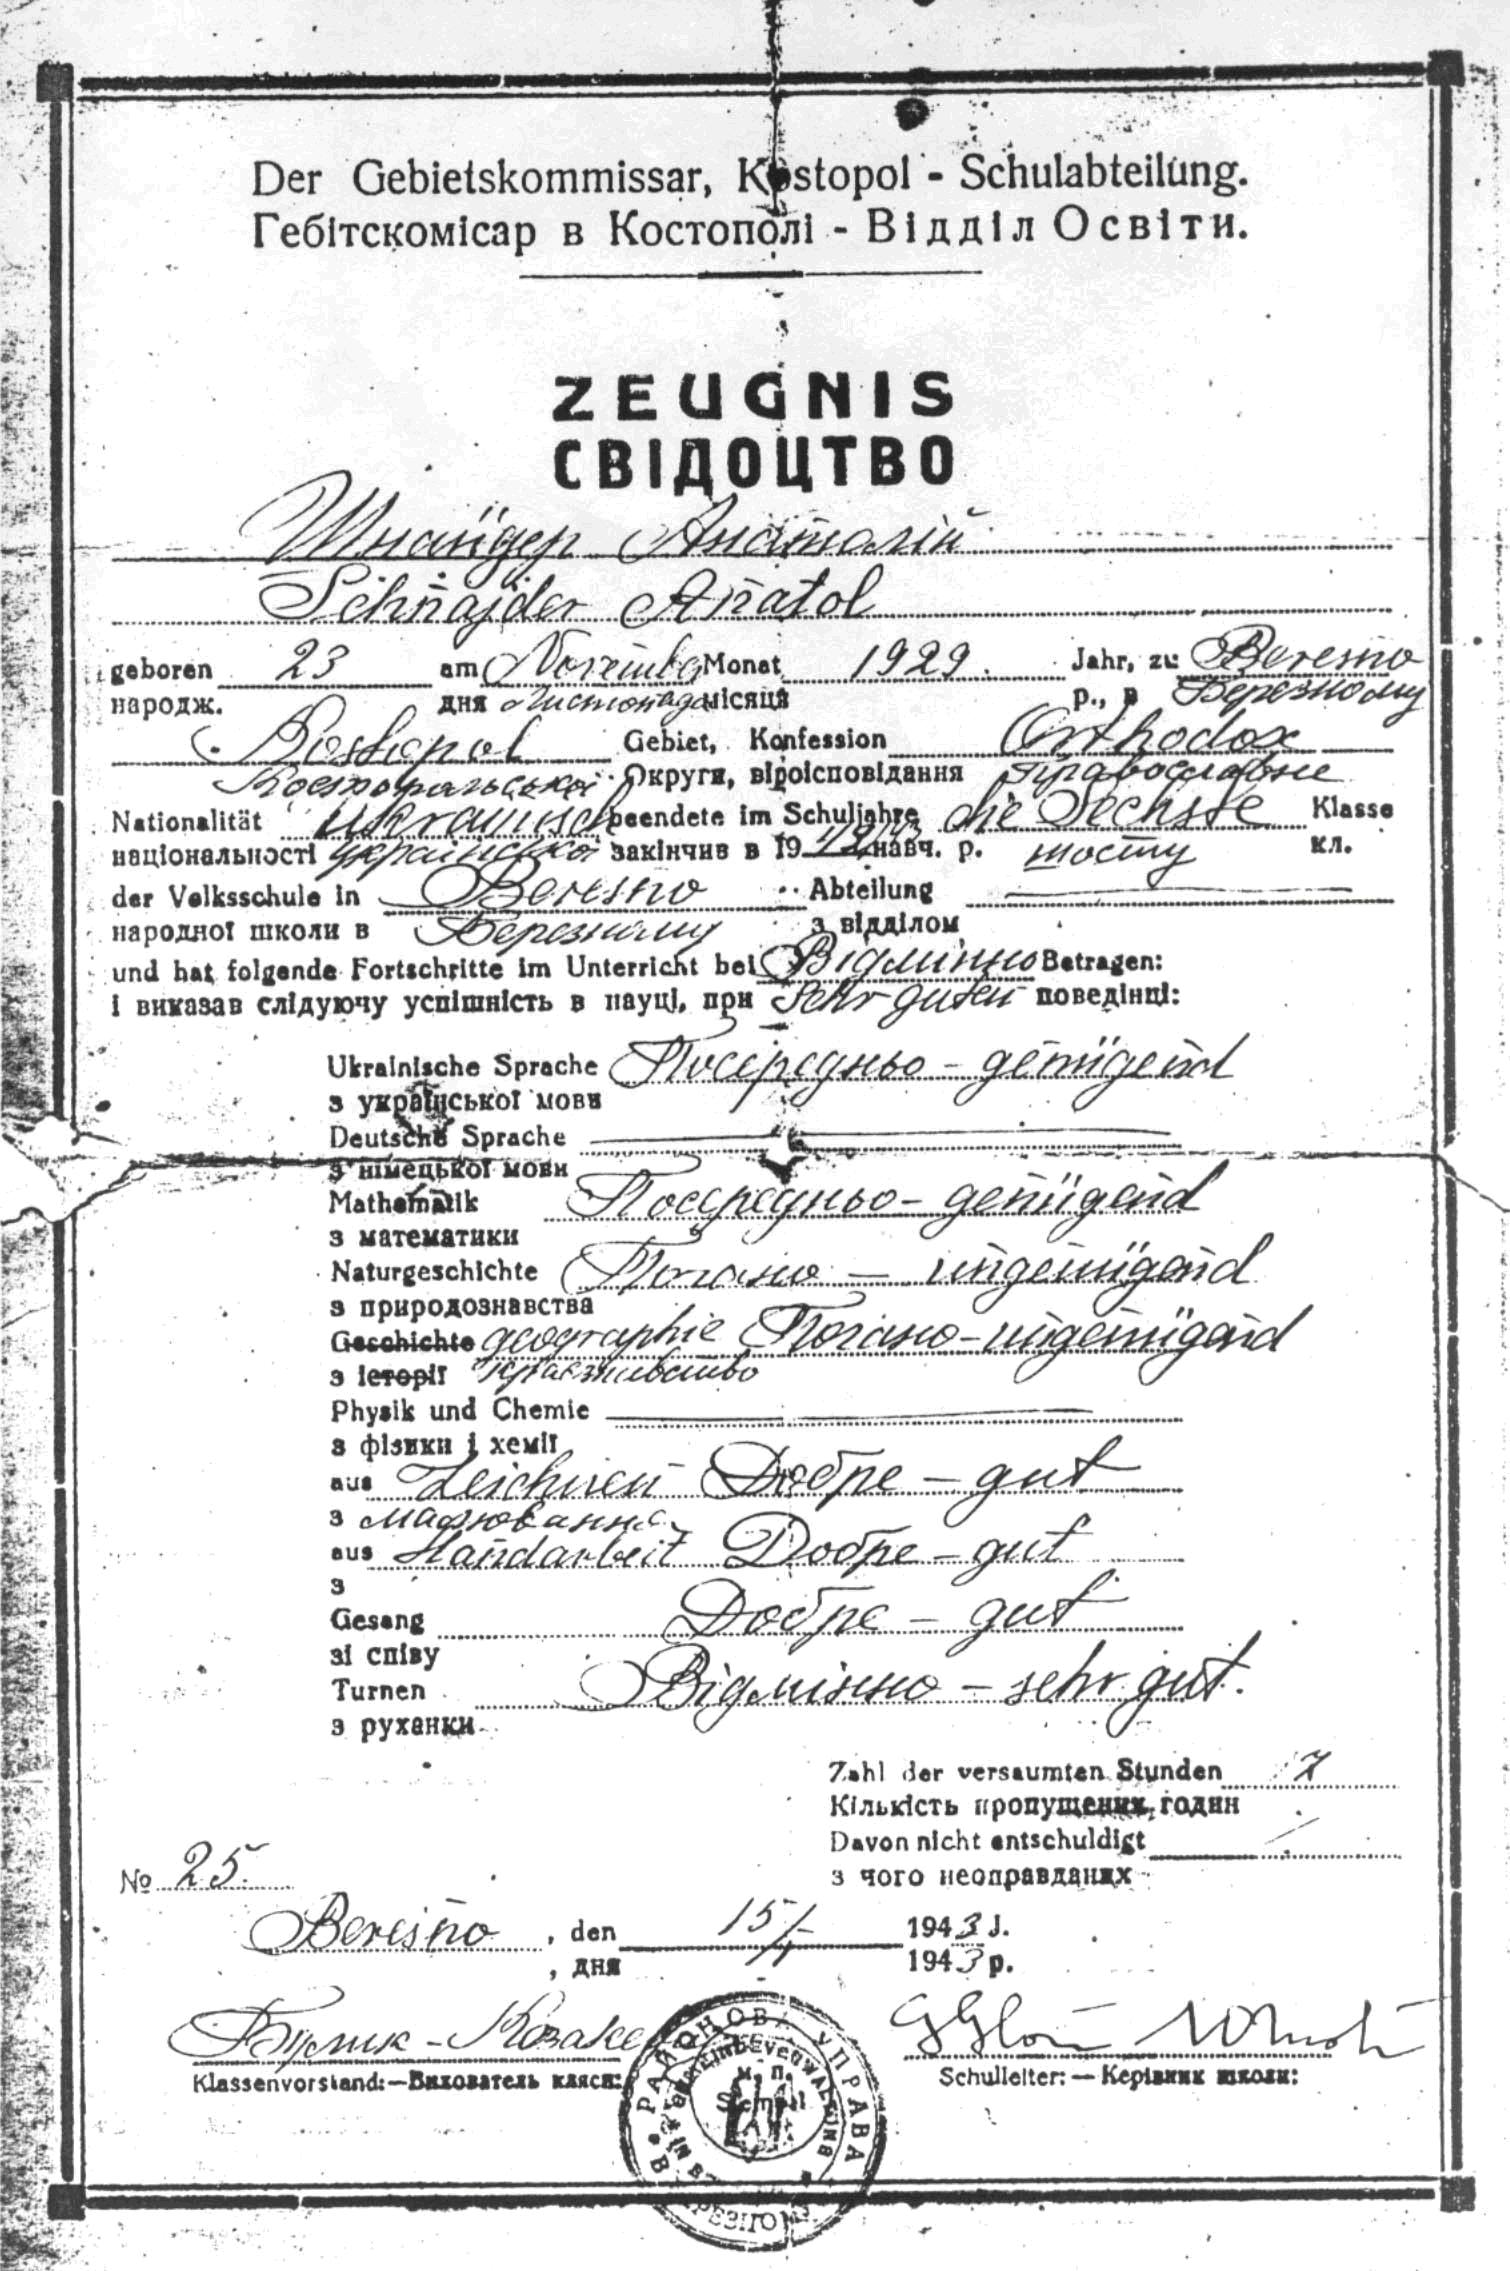 Der Gebietskommissar, Kostopol - Schulabteilung.
Гебітскомісар в Костополі - Відділ Освіти.
ZEUGNIS
СВІДОЦТВО
Шнайдер Анатолій
Schnajder Anatol
geboren 23 am November Monat 1929. Jahr, zu Beresno
народж. дня Листопада місяця р., в Березному
Kostopol Gebiet, Konfession Orthodox
Костопольської Округи, віроісповідання Православне
Nationalität Ukrainisch beendete im Schuljahre die Sechste Klasse
національності української закінчив в 19 42/43 навч. р. шосту кл.
der Volksschule in Beresno Abteilung
народної школи в Березному з відділом
und hat folgende Fortschritte im Unterricht bei Відмінно Betragen:
і виказав слідуючу успішність в науці, при Sehr guten поведінці:
Ukrainische Sprache Посередньо - genügend
з української мови
Deutsche Sprache
з німецької мови
Mathematik Посередньо - genügend
з математики
Naturgeschichte Погано - ungenügend
з природознавства
Geschichte geographie Погано - ungenügend
з історії краєзнавство
Physik und Chemie
з фізики і хемії
aus Zeichnen Добре - gut
з малювання
aus Handarbeit Добре - gut
з
Gesang Добре - gut
зі співу
Turnen Відмінно - sehr gut.
з руханки
Zahl der versaumten Stunden 7
Кількість пропущених годин
Davon nicht entschuldigt
з чого неоправданих
№ 25.
Beresno, den 15/ 1943 J.
, дня 1943 р.
Klassenvorstand:—Вихователь кляси: Schulleiter:— Керівник школи:
РАЙОНОВА УПРАВА
М. П.
Stempel